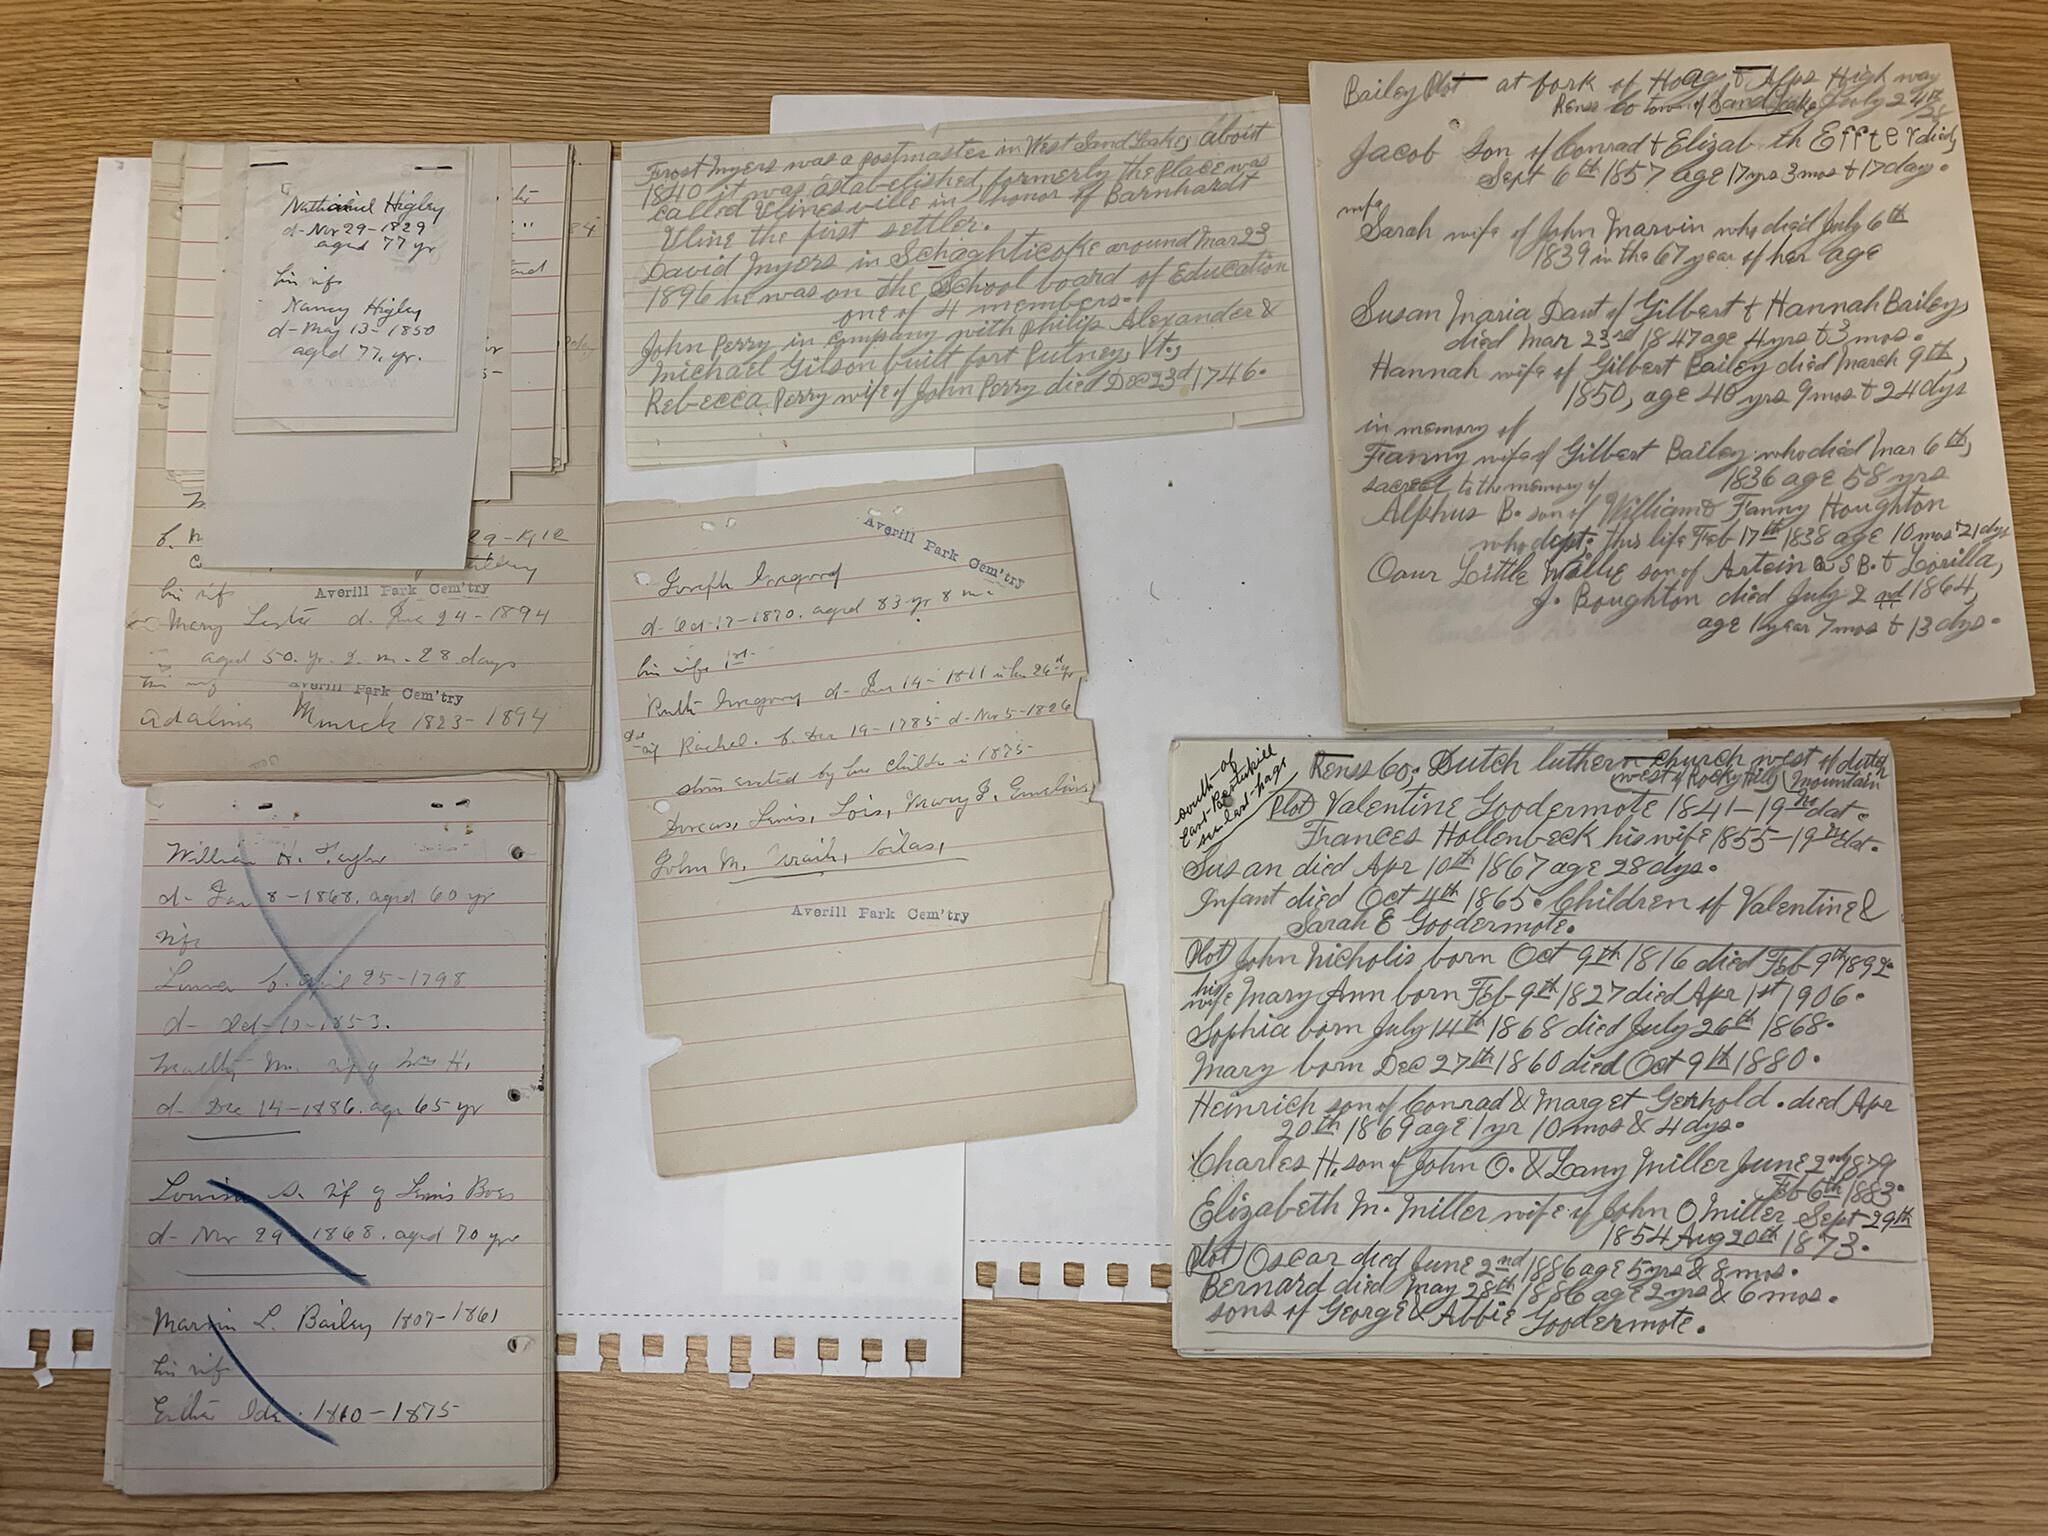 Nathaniel Higley
d-Nov 29-1829
aged 77 yr
his wife
Nancy Higley
d-May 13-1850
aged 77. yr.
his wife
Averill Park Cem'try
Mary d. 24-1894
aged 50. yr. 2. m. 28 days
his wife
Averill Park Cem'try
Adaline 1823-1894
William H. Taylor
d- Jan 8-1868. aged 60 yr
wife
b. April 25-1798
d- Oct-10-1853.
M. wife of Wm H.
d- Dec 14-1886. age 65 yr
Louisa S. wife of Lewis
d- Nov 29-1868. aged 70 yr
L. Bailey 1807-1861
his wife
Esther 1810-1875
Frost Myers was a postmaster in West Sand Lake, about
1840 it was established, formerly the place was
called Ulinesville in honor of Barnhardt
Uline the first settler.
David Myers in Schaghticoke around Mar 23
1896 he was on the School board of Education
one of 4 members.
John Perry in company with Philip Alexander &
Michael Gilson built fort Putney, Vt.,
Rebecca Perry wife of John Perry died Dec 23d 1746.
Averill Park Cem'try
Joseph Gregory
d- Oct-17-1870. aged 83 yr 8 m.
his wife 1st-
Ruth Gregory d- Jan 14-1811 in her 26 yr
wf Rachel. b. Dec 19-1785- d- Nov 5-1826
stone erected by her children in 1875-
Dorcas, Lewis, Lois, Mary J, Emeline,
John M, Silas,
Averill Park Cem'try
Bailey Plot at fork of Hoag & Alps High way
Renss Co town of Sand Lake July 24th
Jacob son of Conrad & Elizabeth Effter died,
Sept 6th 1857 age 17yrs 3mos & 17days.
Sarah wife of John Marvin who died July 6th
1839 in the 67 year of her age
Susan Maria Daut of Gilbert & Hannah Bailey,
died Mar 23rd 1847 age 4yrs & 3 mos.
Hannah wife of Gilbert Bailey died March 9th,
1850, age 40 yrs 9mos & 24dys
in memory of
Fanny wife of Gilbert Bailey who died Mar 6th,
1836 age 58 yrs
sacred to the memory of
Alphus B. son of William & Fanny Houghton
who dept. this life Feb 17th 1838 age 10 mos & 21dys
Oour Little Willie son of & Lorilla,
J. Boughton died July 2nd 1864,
age 1year 7mos & 13 dys.
south-of
East Poestenkill
on last page
Renss Co. Dutch luthern church west of dutch
(west of Rocky Hill) mountain
(Plot) Valentine Goodermote 1841-19 no dat.
Frances Hollenbeck his wife 1855-19 no dat.
Susan died Apr 10th 1867 age 28dys.
Infant died Oct 4th 1865. Children of Valentine &
Sarah E Goodermote.
(Plot) John Nicholis born Oct 9th 1816 died Feb 9th 1892.
his wife Mary Ann born Feb 9th 1827 died Apr 1st 1906.
Sophia born July 14th 1868 died July 26th 1868.
Mary born Dec 27th 1860 died Oct 9th 1880.
Heinrich son of Conrad & Marget Gerhold. died Apr
20th 1869 age 1 yr 10 mos & 4 dys.
Charles H. son of John O. & Lany Miller June 2nd 1879
Feb 6th 1883.
Elizabeth M. Miller wife of John O Miller Sept 29th
1854 Aug 20th 1873.
(Plot) Oscar died June 2nd 1886 age 5yrs & 8 mos.
Bernard died May 28th 1886 age 2yrs & 6 mos.
sons of George & Abbie Goodermote.